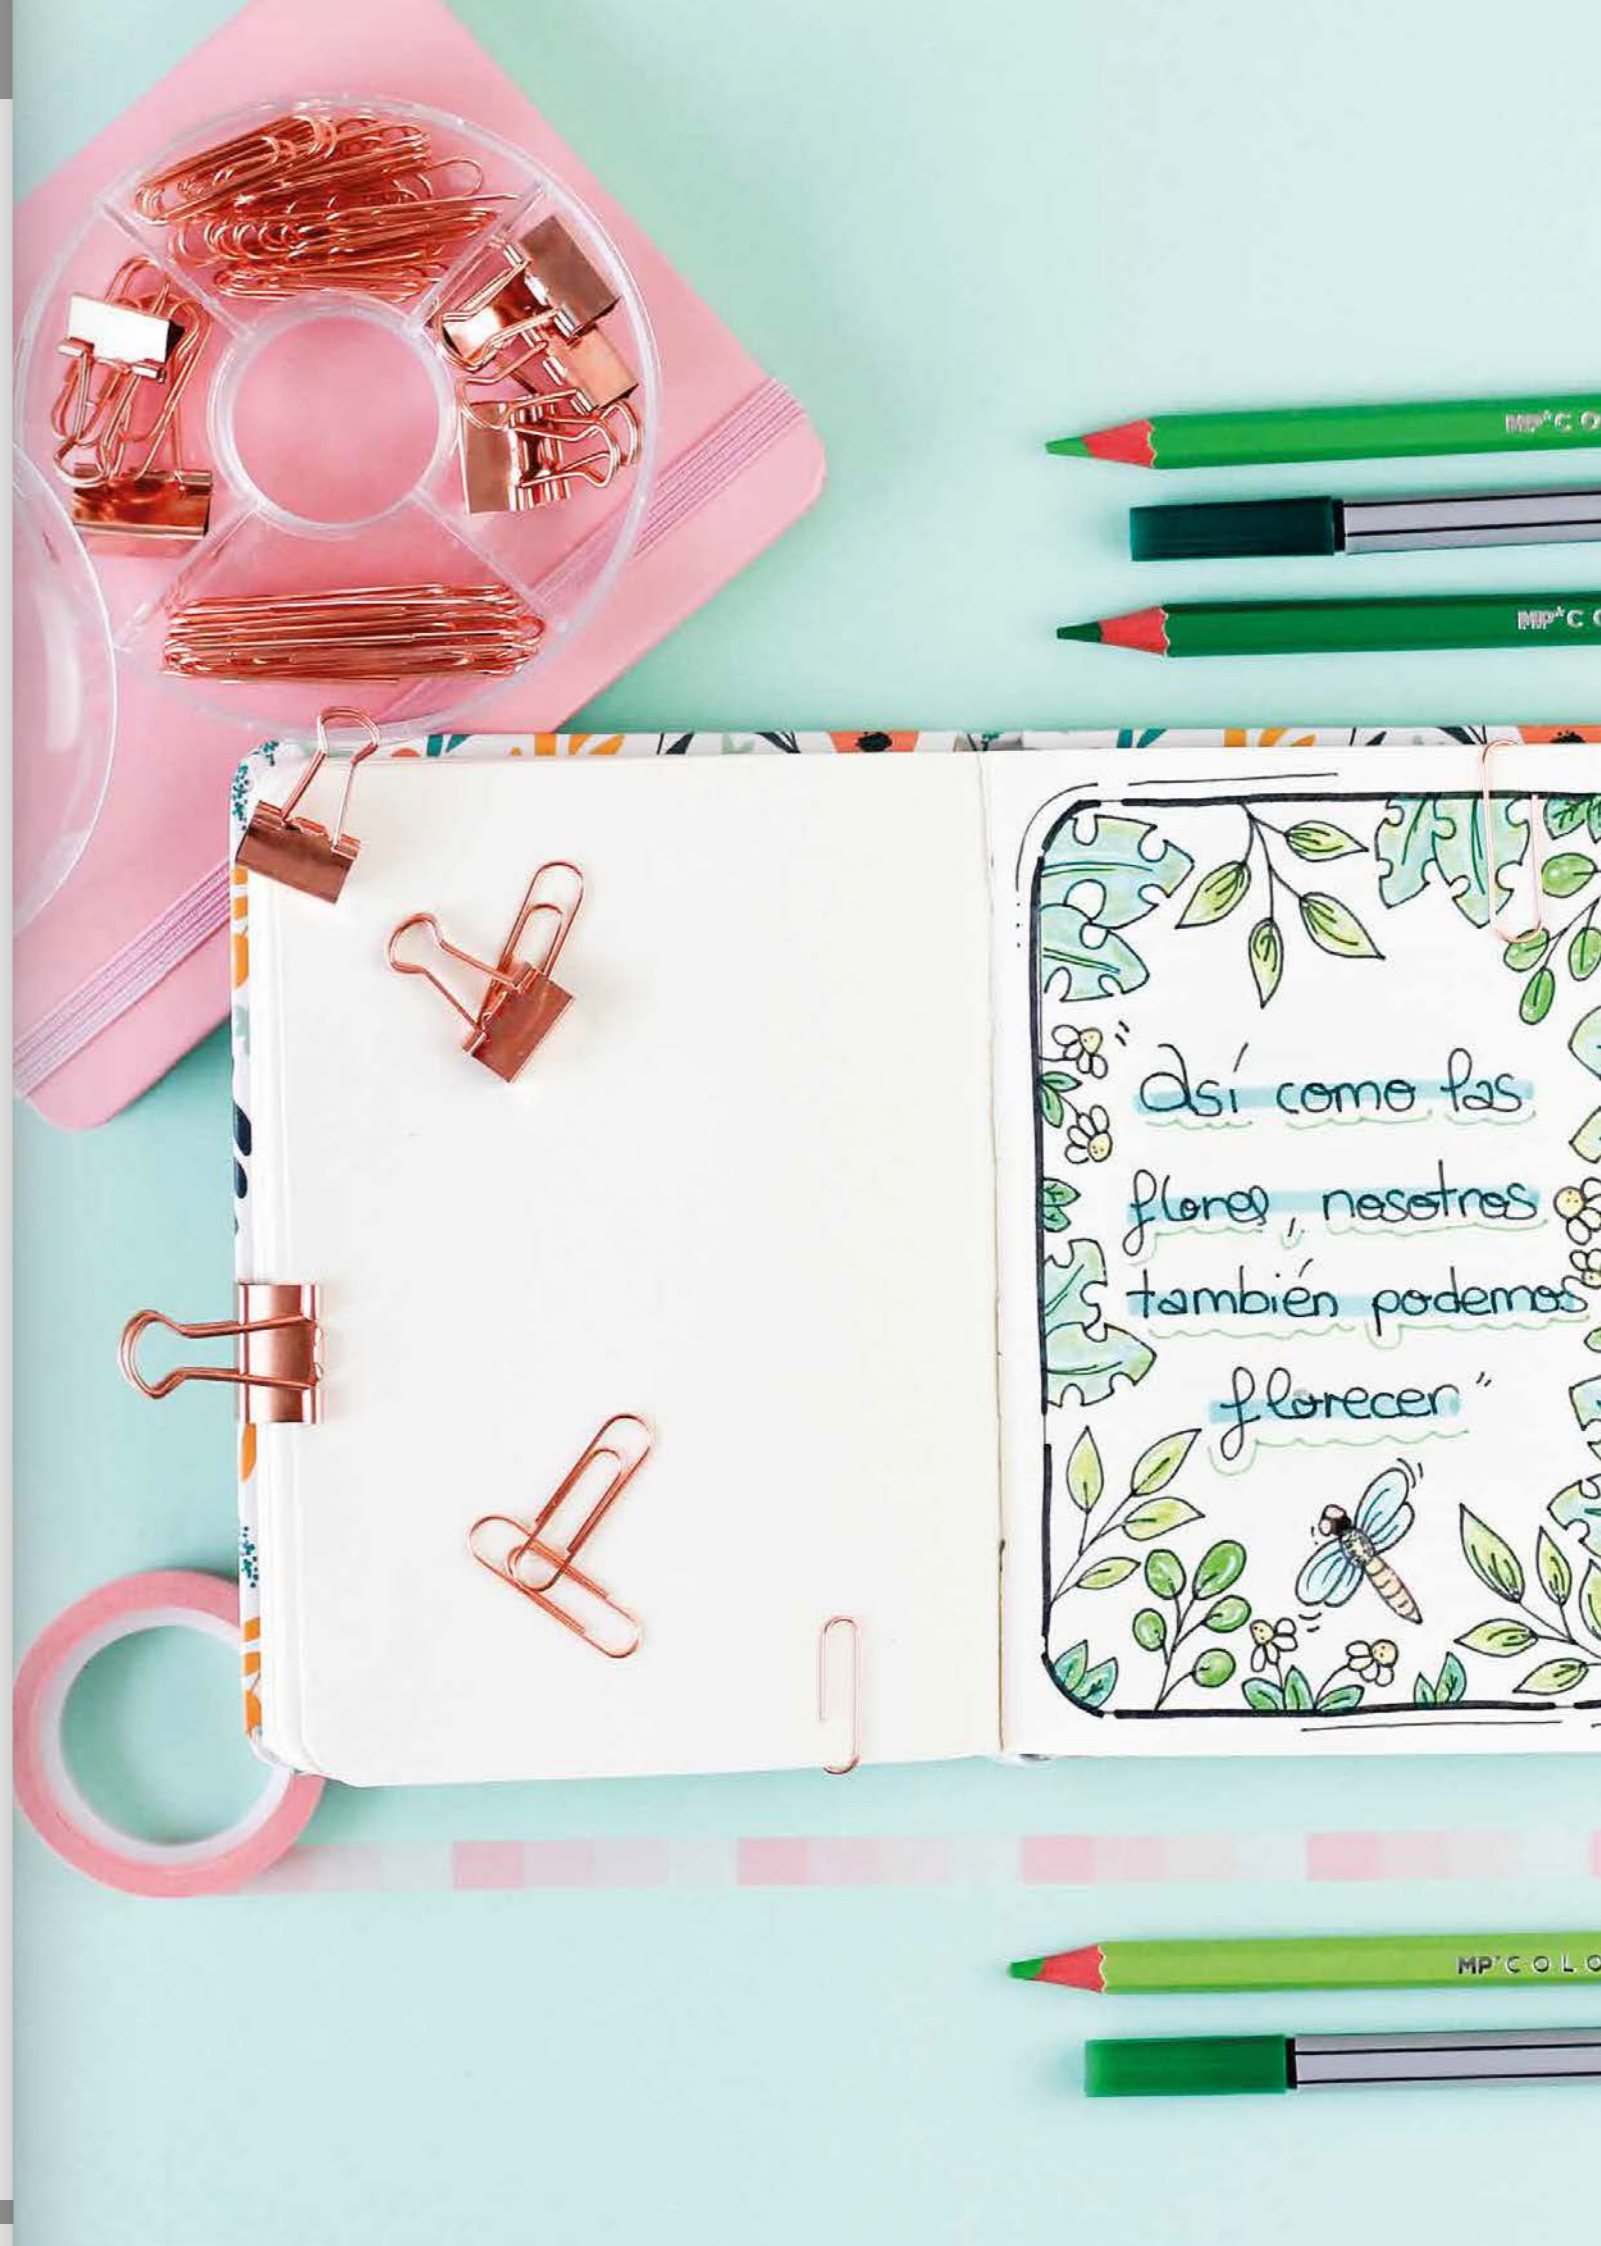 MP*CO
MP*CO
"Así como las
flores, nosotros
también podemos
florecer"
MP*COLO